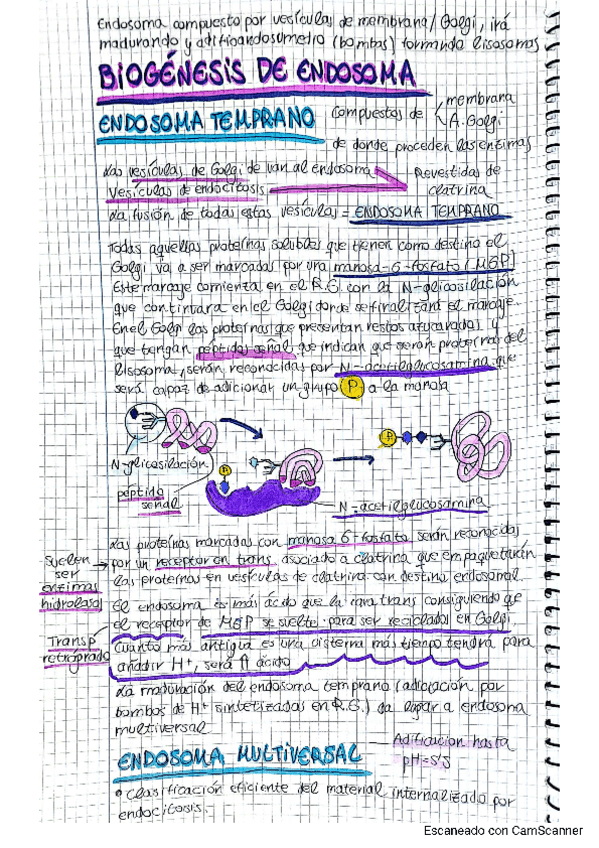 Endosoma compuesto por vesículas de membrana/Golgi, irá
madurando y acidificandosumedio (bombas) formando lisosomas
BIOGÉNESIS DE ENDOSOMA
ENDOSOMA TEMPRANO compuestos de membrana
A. Golgi
de donde proceden las enzimas
Las vesículas de Golgi de van al endosoma Revestidas de
Vesículas de endocitosis clatrina
La fusión de todas estas vesículas = ENDOSOMA TEMPRANO
Todas aquellas proteínas solubles que tienen como destino el
Golgi va a ser marcadas por una manosa-6-fosfato (M6P)
Este marcaje comienza en el R.E. con la N-glicosilación
que continuara en el Golgi donde se finalizará el marcaje.
En el Golgi las proteínas que presentan restos azucarados y
que tengan péptidos señal que indican que serán proteínas del
lisosoma, serán reconocidas por N-acetilglucosamina que
será capaz de adicionar un grupo P a la manosa
P
P
N-glicosilación
péptido
señal
N-acetilglucosamina
Las proteínas marcadas con manosa 6-fosfato serán reconocidas
por un receptor en trans asociado a clatrina que empaquetarán
las proteínas en vesículas de clatrina con destino endosomal.
Suelen
ser
enzimas
hidrolasas
El endosoma es más ácido que la cara trans consiguiendo que
el receptor de M6P se suelte para ser reciclados en Golgi
Transp
retrógrado
Cuanto más antigua es una cisterna más tiempo tendrá para
añadir H+, será ↑ ácido
La maduración del endosoma temprano (adicación por
bombas de H+ sintetizadas en R.E.) da lugar a endosoma
multiversal
ENDOSOMA MULTIVERSAL Adificacion hasta
pH=5'5
• Clasificación eficiente del material internalizado por
endocitosis.
Escaneado con CamScanner